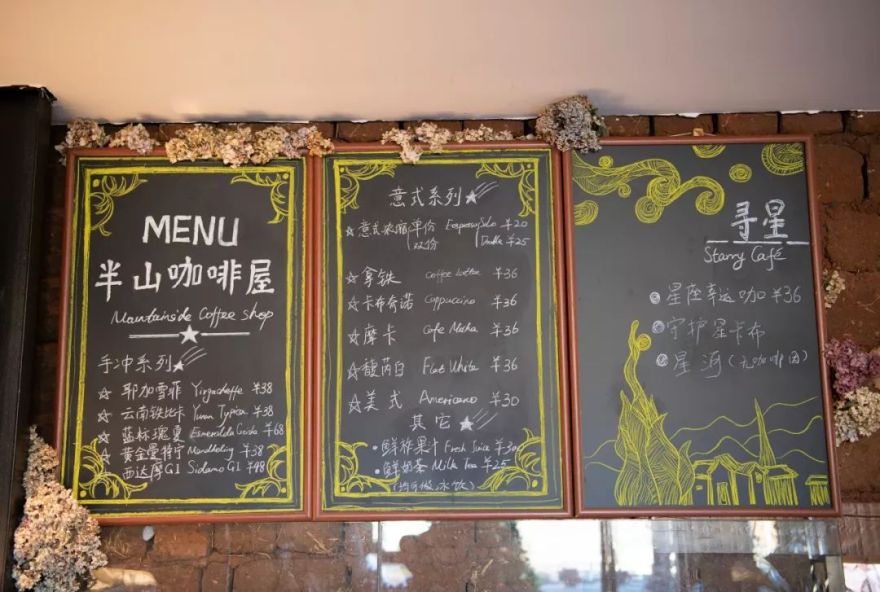 MENU
半山咖啡屋
Mountainside Coffee shop
手冲系列
耶加雪菲 Yirgacheffe ¥38
云南铁比卡 Yunan Typica ¥38
蓝标瑰夏 Esmeralda Geisha ¥68
黄金曼特宁 Mandheling ¥38
西达摩G1 Sidamo G1 ¥48
意式系列
意式浓缩 单份 Espresso Solo ¥20
双份 Double ¥25
拿铁 Coffee Latte ¥36
卡布奇诺 Cappuccino ¥36
摩卡 Cafe Mocha ¥36
馥芮白 Flat White ¥36
美式 Americano ¥30
其它
鲜榨果汁 Fresh Juice ¥30
鲜奶茶 Milk Tea ¥25
(均可做冰饮)
寻星
Starry Café
星座幸运咖 ¥36
守护星卡布
星河(无咖啡因)